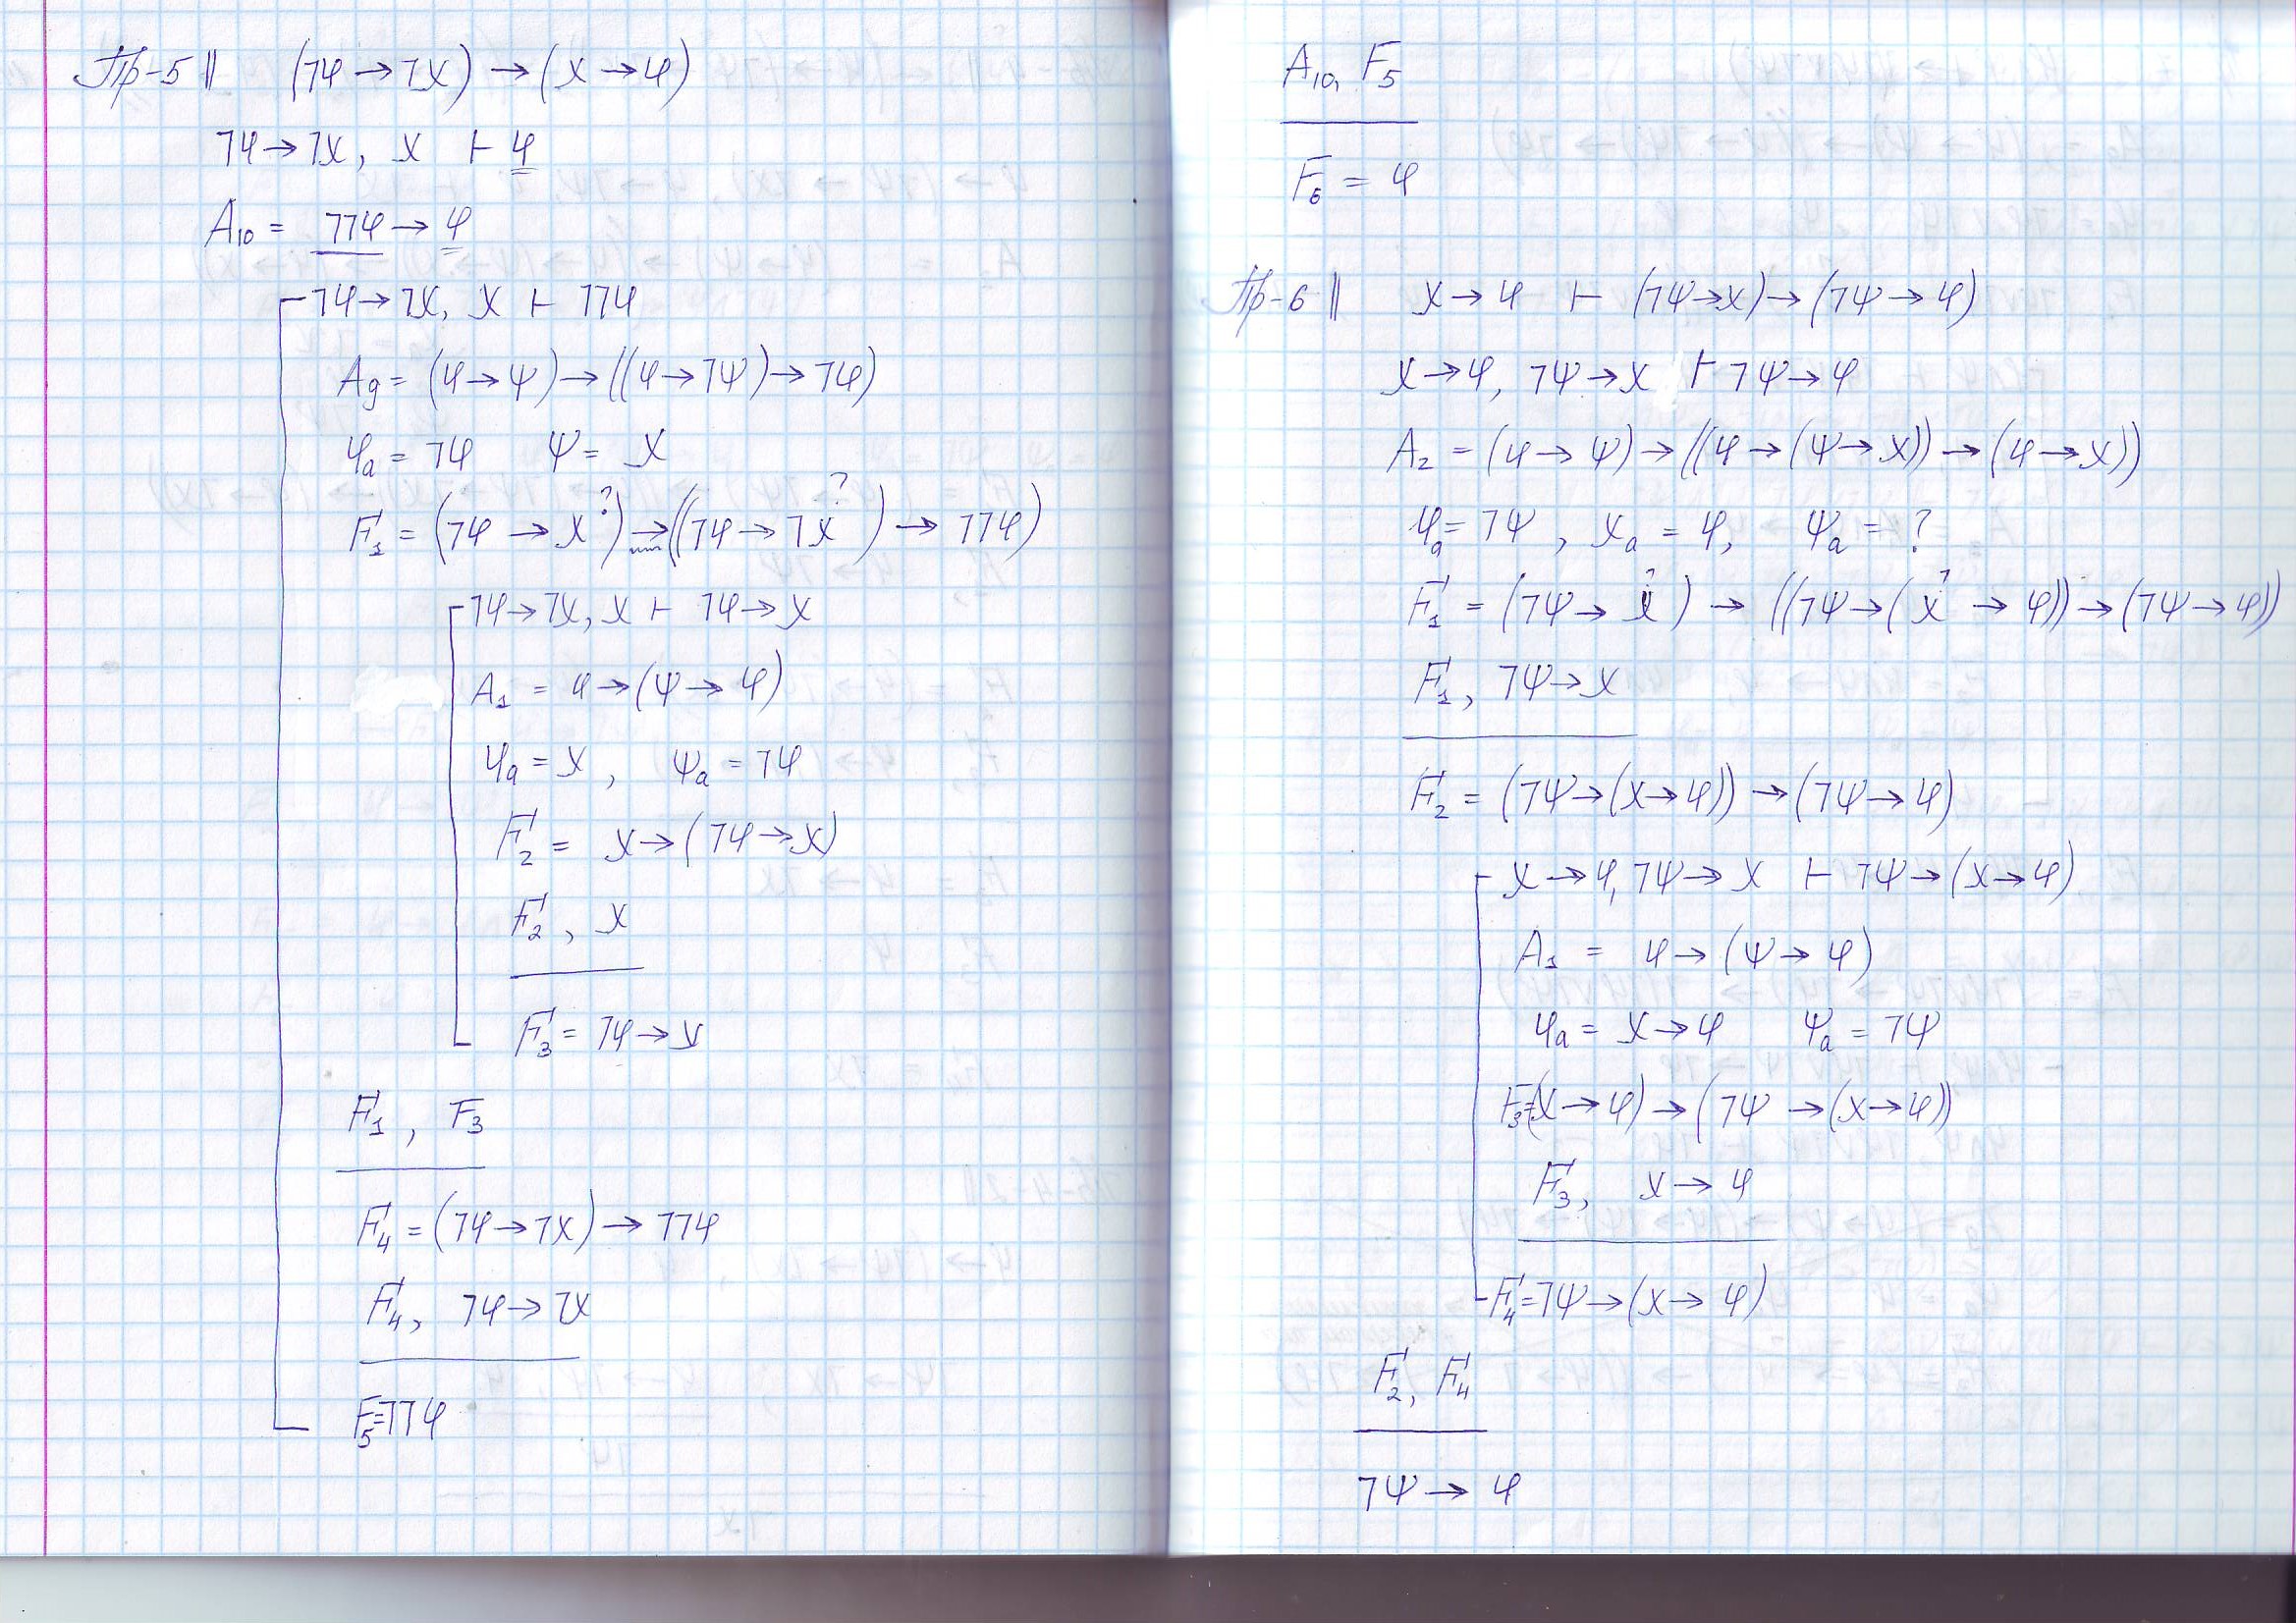 Пр-5 || (⅂φ → ⅂χ) → (χ → φ)
⅂φ → ⅂χ, χ ⊢ φ
A₁₀ = ⅂⅂φ → φ
⅂φ → ⅂χ, χ ⊢ ⅂⅂φ
A₉ = (φ → ψ) → ((φ → ⅂ψ) → ⅂φ)
φₐ = ⅂φ ψ = χ
F₁ = (⅂φ → χ?) → ((⅂φ → ⅂χ?) → ⅂⅂φ)
⅂φ → ⅂χ, χ ⊢ ⅂φ → χ
A₁ = φ → (ψ → φ)
φₐ = χ, ψₐ = ⅂φ
F₂ = χ → (⅂φ → χ)
F₂, χ
F₃ = ⅂φ → χ
F₁, F₃
F₄ = (⅂φ → ⅂χ) → ⅂⅂φ
F₄, ⅂φ → ⅂χ
F₅ = ⅂⅂φ
A₁₀, F₅
F₆ = φ
Пр-6 || χ → φ ⊢ (⅂ψ → χ) → (⅂ψ → φ)
χ → φ, ⅂ψ → χ ⊢ ⅂ψ → φ
A₂ = (φ → ψ) → ((φ → (ψ → χ)) → (φ → χ))
φₐ = ⅂ψ, χₐ = φ, ψₐ = ?
F₁ = (⅂ψ → χ?) → ((⅂ψ → (χ? → φ)) → (⅂ψ → φ))
F₁, ⅂ψ → χ
F₂ = (⅂ψ → (χ → φ)) → (⅂ψ → φ)
χ → φ, ⅂ψ → χ ⊢ ⅂ψ → (χ → φ)
A₁ = φ → (ψ → φ)
φₐ = χ → φ ψₐ = ⅂ψ
F₃ = (χ → φ) → (⅂ψ → (χ → φ))
F₃, χ → φ
F₄ = ⅂ψ → (χ → φ)
F₂, F₄
⅂ψ → φ